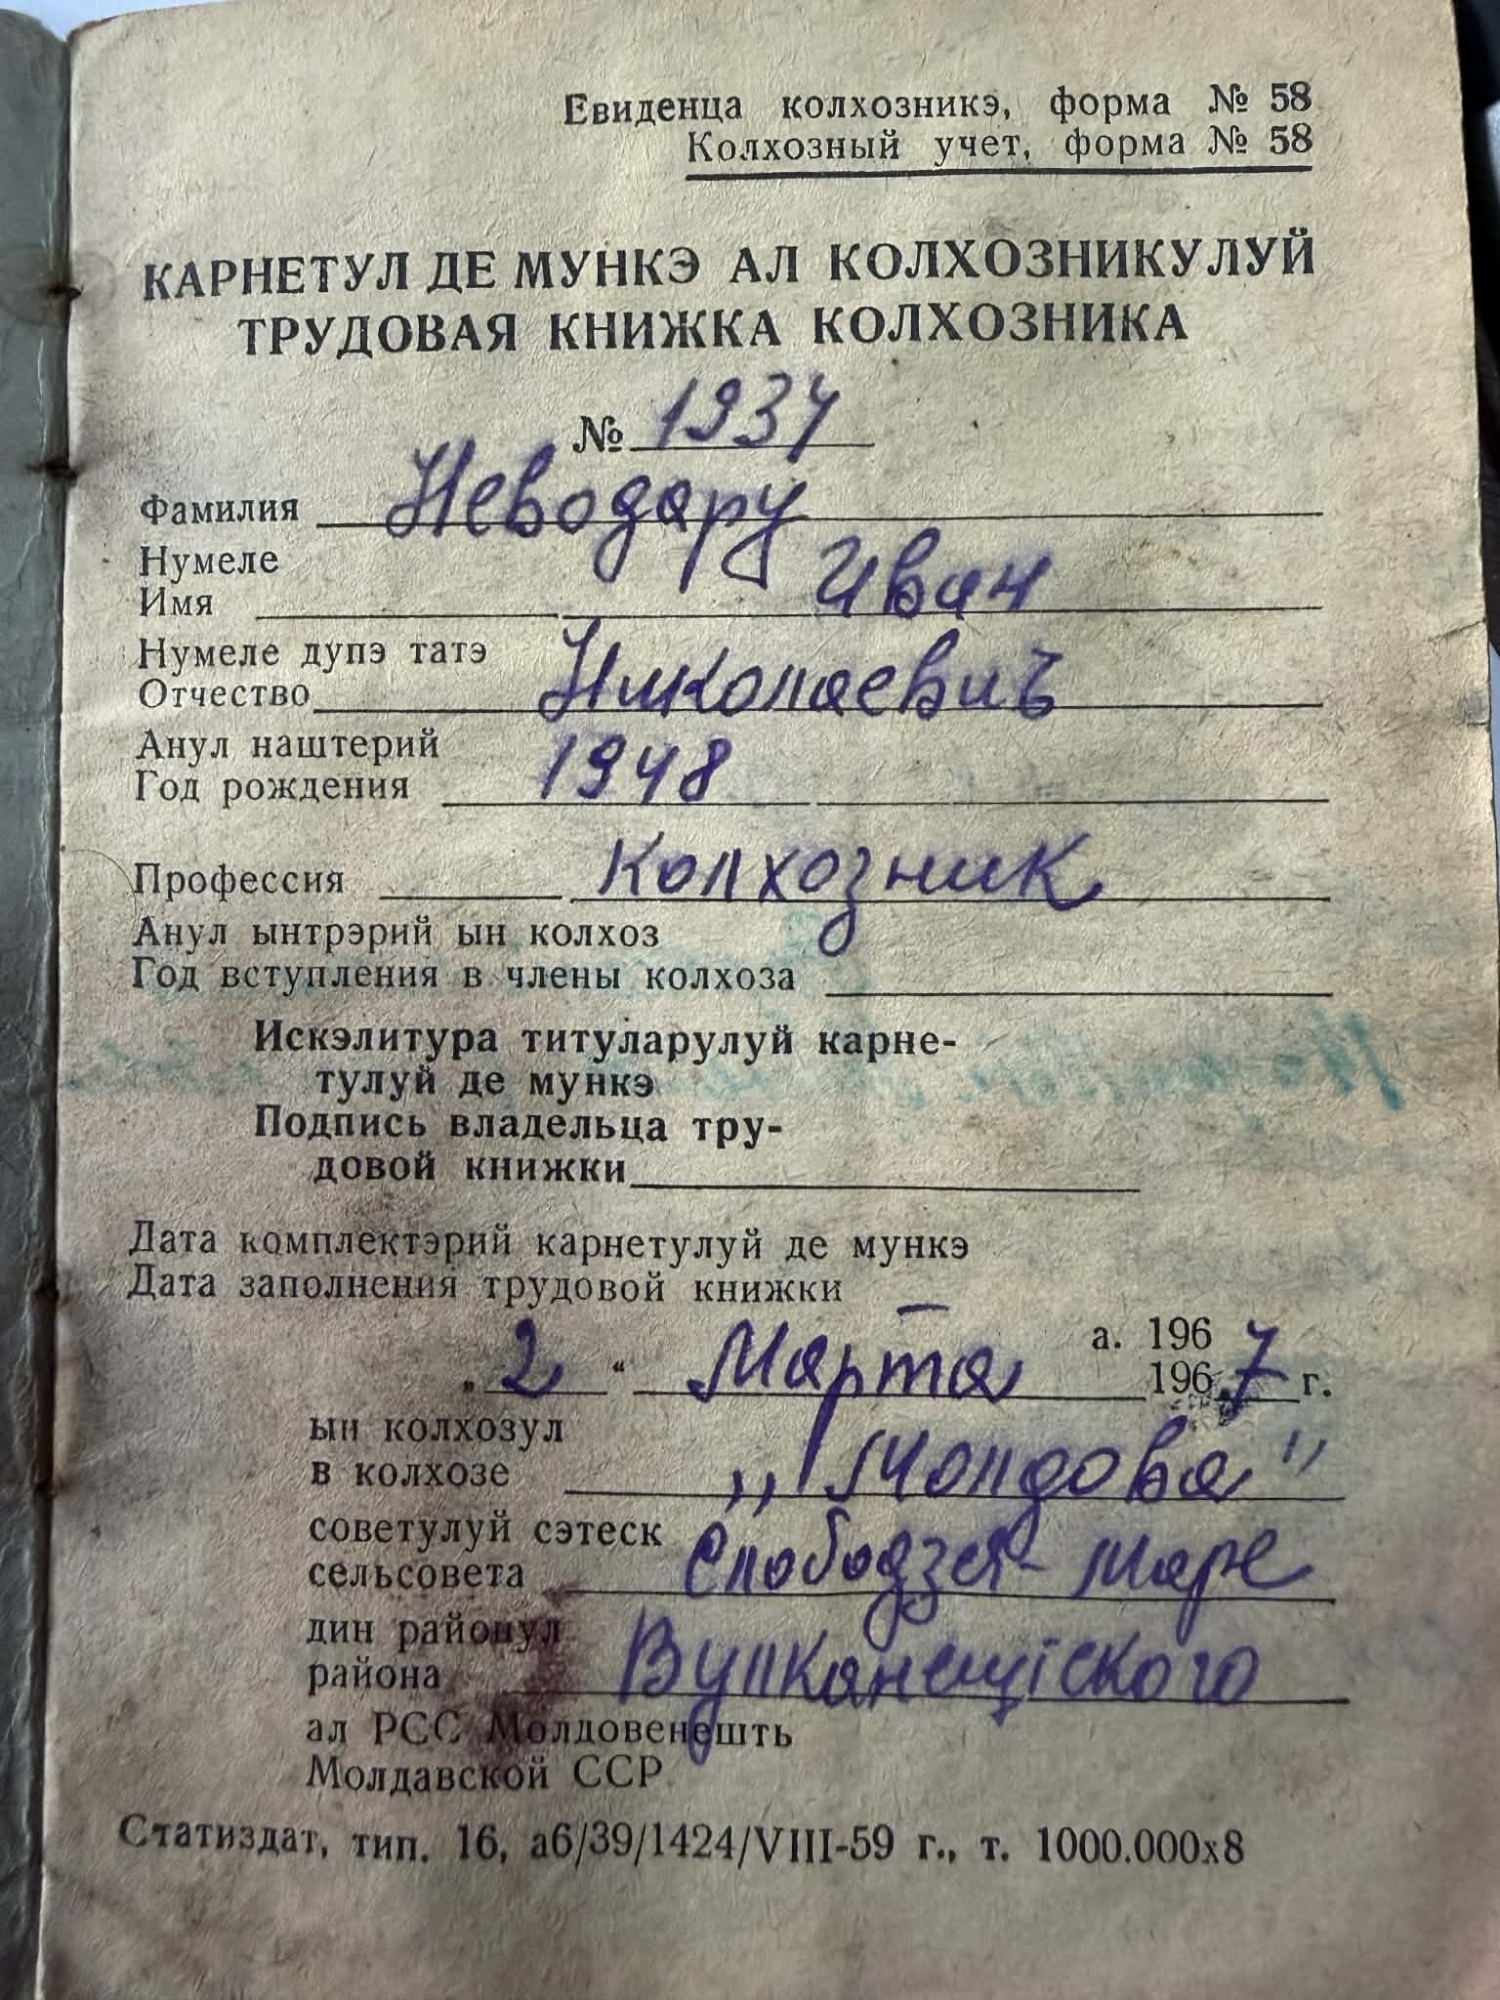 Евиденца колхозникэ, форма № 58
Колхозный учет, форма № 58
КАРНЕТУЛ ДЕ МУНКЭ АЛ КОЛХОЗНИКУЛУЙ
ТРУДОВАЯ КНИЖКА КОЛХОЗНИКА
№ 1934
Фамилия Неводару
Нумеле
Имя Иван
Нумеле дупэ татэ
Отчество Николаевич
Анул наштерий
Год рождения 1948
Профессия Колхозник
Анул ынтрэрий ын колхоз
Год вступления в члены колхоза
Искэлитура титуларулуй карне-
тулуй де мункэ
Подпись владельца тру-
довой книжки
Дата комплектэрий карнетулуй де мункэ
Дата заполнения трудовой книжки
а. 196
„2“ Марта 1967 г.
ын колхозул
в колхозе „Молдова"
советулуй сэтеск
сельсовета Слободзея-Маре
дин районул
района Вулканештского
ал РСС Молдовенешть
Молдавской ССР
Статиздат, тип. 16, а6/39/1424/VIII-59 г., т. 1000.000х8